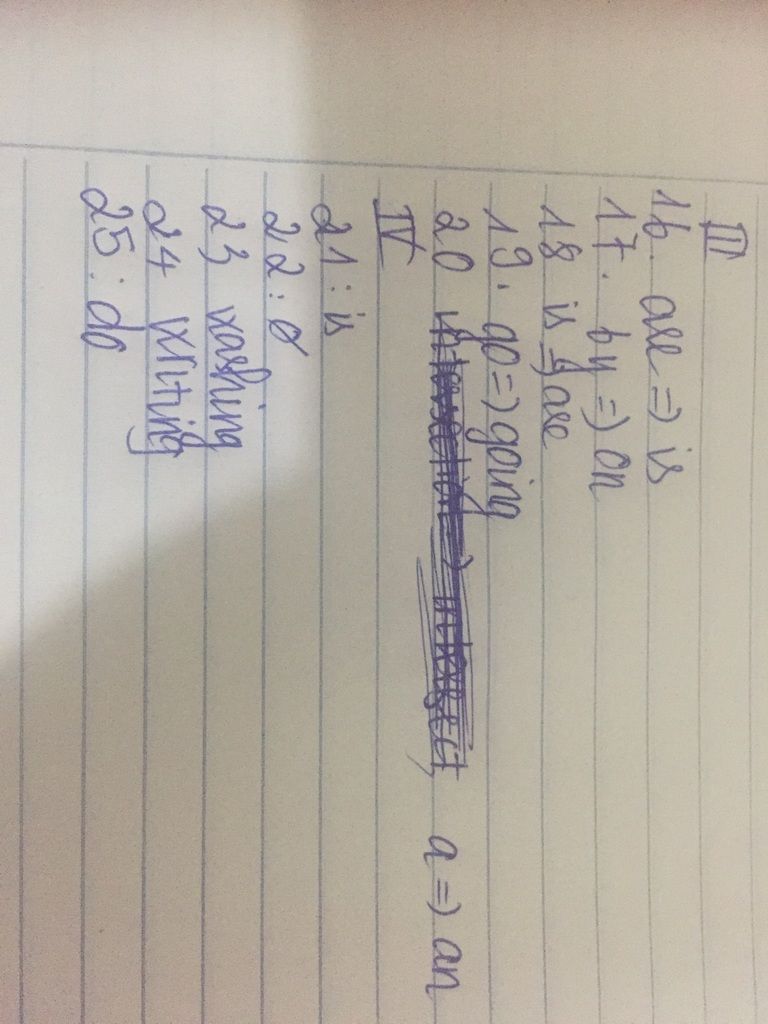 III
16. are => is
17. by => on
18 is => are
19. go => going
20 intersection => intersect, a => an
IV
21: is
22: ∅
23 washing
24 writing
25: do